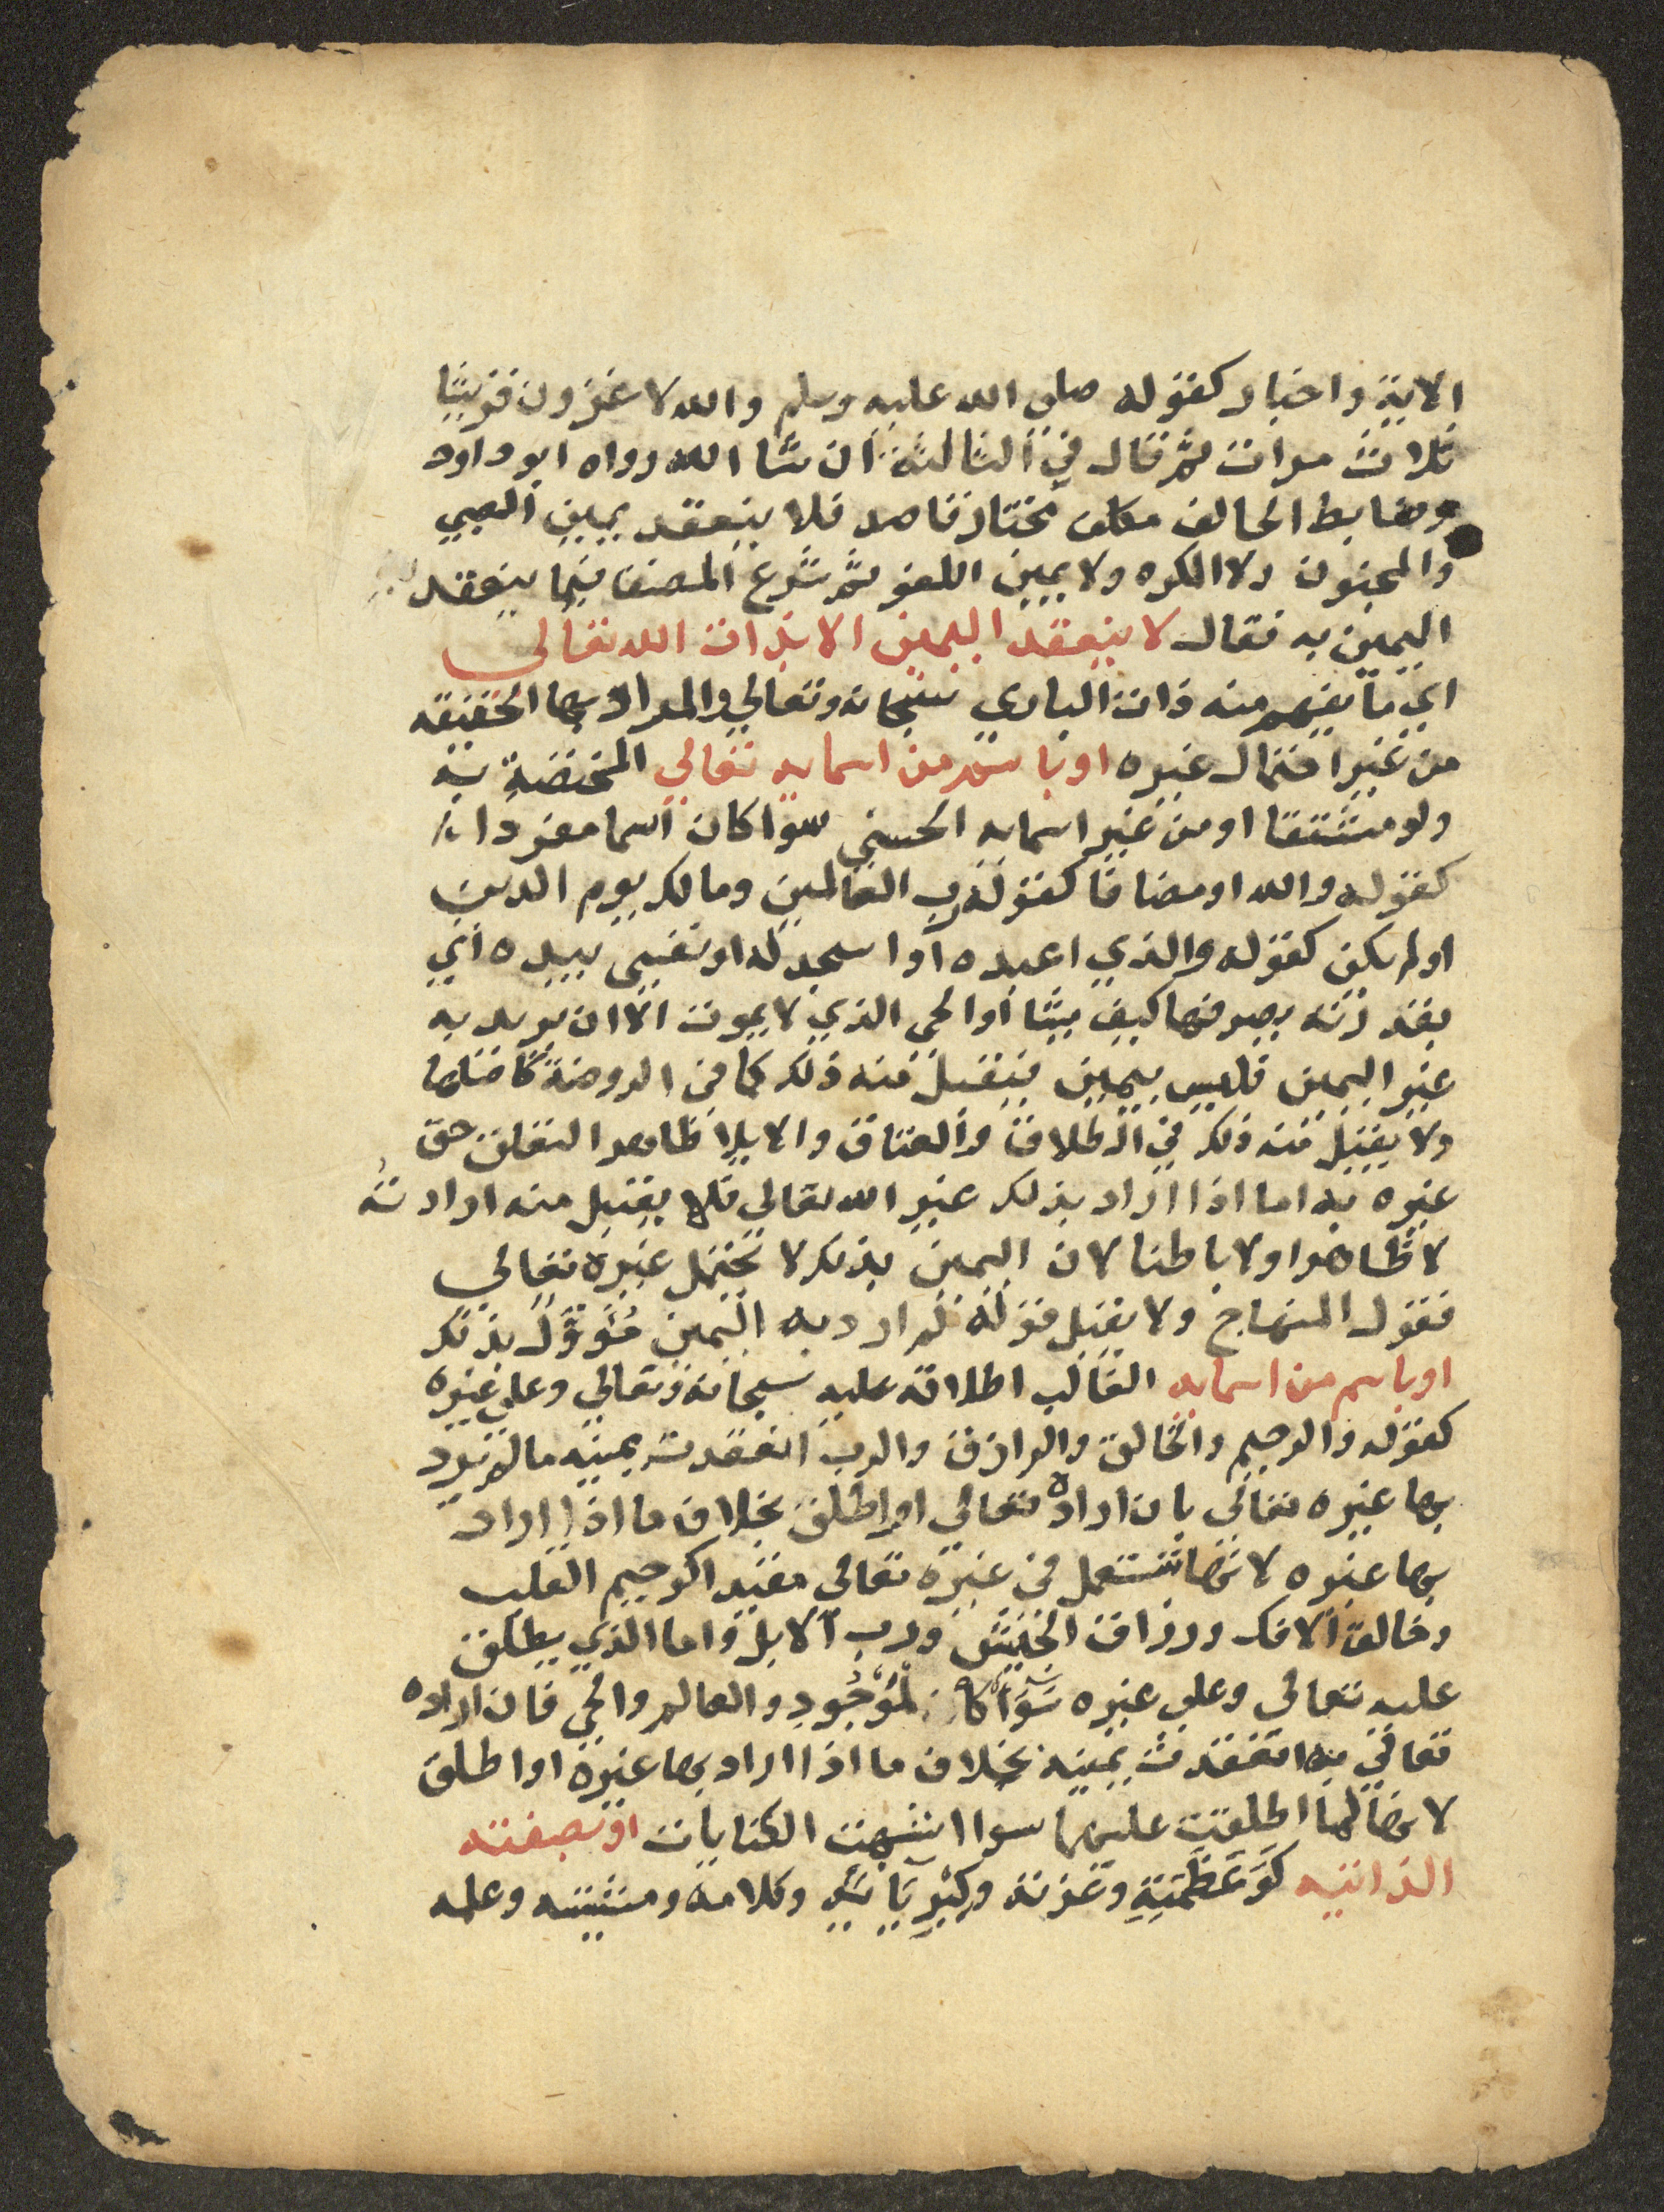 الاية واخبار كقوله صلى الله عليه وسلم والله لاغزون قريشا
ثلاث مرات ثم قال في الثالثة ان شا الله رواه ابو داود
وضابط الحالف مكلف مختار قاصد فلا ينعقد يمين الصبي
والمجنون ولا المكره ولا يمين اللغو ثم شرع المصنف فيما ينعقد
اليمين به فقال لا ينعقد اليمين الا بذات الله تعالى
اي ما يفهم منه ذات الباري سبحانه وتعالى والمراد بها الحقيقه
من غير احتمال غيره او باسم من اسمايه تعالى المختصة به
ولو مشتقا او من غير اسمايه الحسنى سوا كان اسما مفردا
كقوله والله او مضافا كقوله رب العالمين ومالك يوم الدين
او لم يكن كقوله والذي اعبده او اسجد له او نفسي بيده اي
بقدرته يصرفها كيف يشا او الحي الذي لا يموت الا ان يريد به
غير اليمين فليس بيمين فيقبل منه ذلك كما في الروضة كاصلها
ولا يقبل منه ذلك في الطلاق والعتاق والايلا ظاهرا لتعلق حق
غيره به اما اذا اراد بذلك غير الله تعالى فلا يقبل منه ارادته
لا ظاهرا ولا باطنا لان اليمين بذلك لا تحتمل غيره تعالى
فقول المنهاج ولا يقبل قوله لم ارد به اليمين مُؤَوَّل بذلك
او باسم من اسمايه الغالب اطلاقه عليه سبحانه وتعالى وعلى غيره
كقوله والرحيم والخالق والرازق والرب انعقدت يمينه ما لم يرد
بها غيره تعالى بان اراده تعالى او اطلق بخلاف ما اذا اراد
بها غيره لانها تستعمل في غيره تعالى مقيدا كرحيم القلب
وخالق الافك ورازق الجيش ورب الابل واما الذي يطلق
عليه تعالى وعلى غيره سَوَاءً كالمَوْجُودِ والعالم والحي فان اراده
تعالى به انعقدت يمينه بخلاف ما اذا اراد بها غيره او اطلق
لانها لما اطلقت عليهما سوا اشبهت الكنايات او بصفته
الذاتيه كَوَعَظَمَتِهِ وَعزته وكِبْرِيَايهِ وكلامه ومشيئته وعلمه